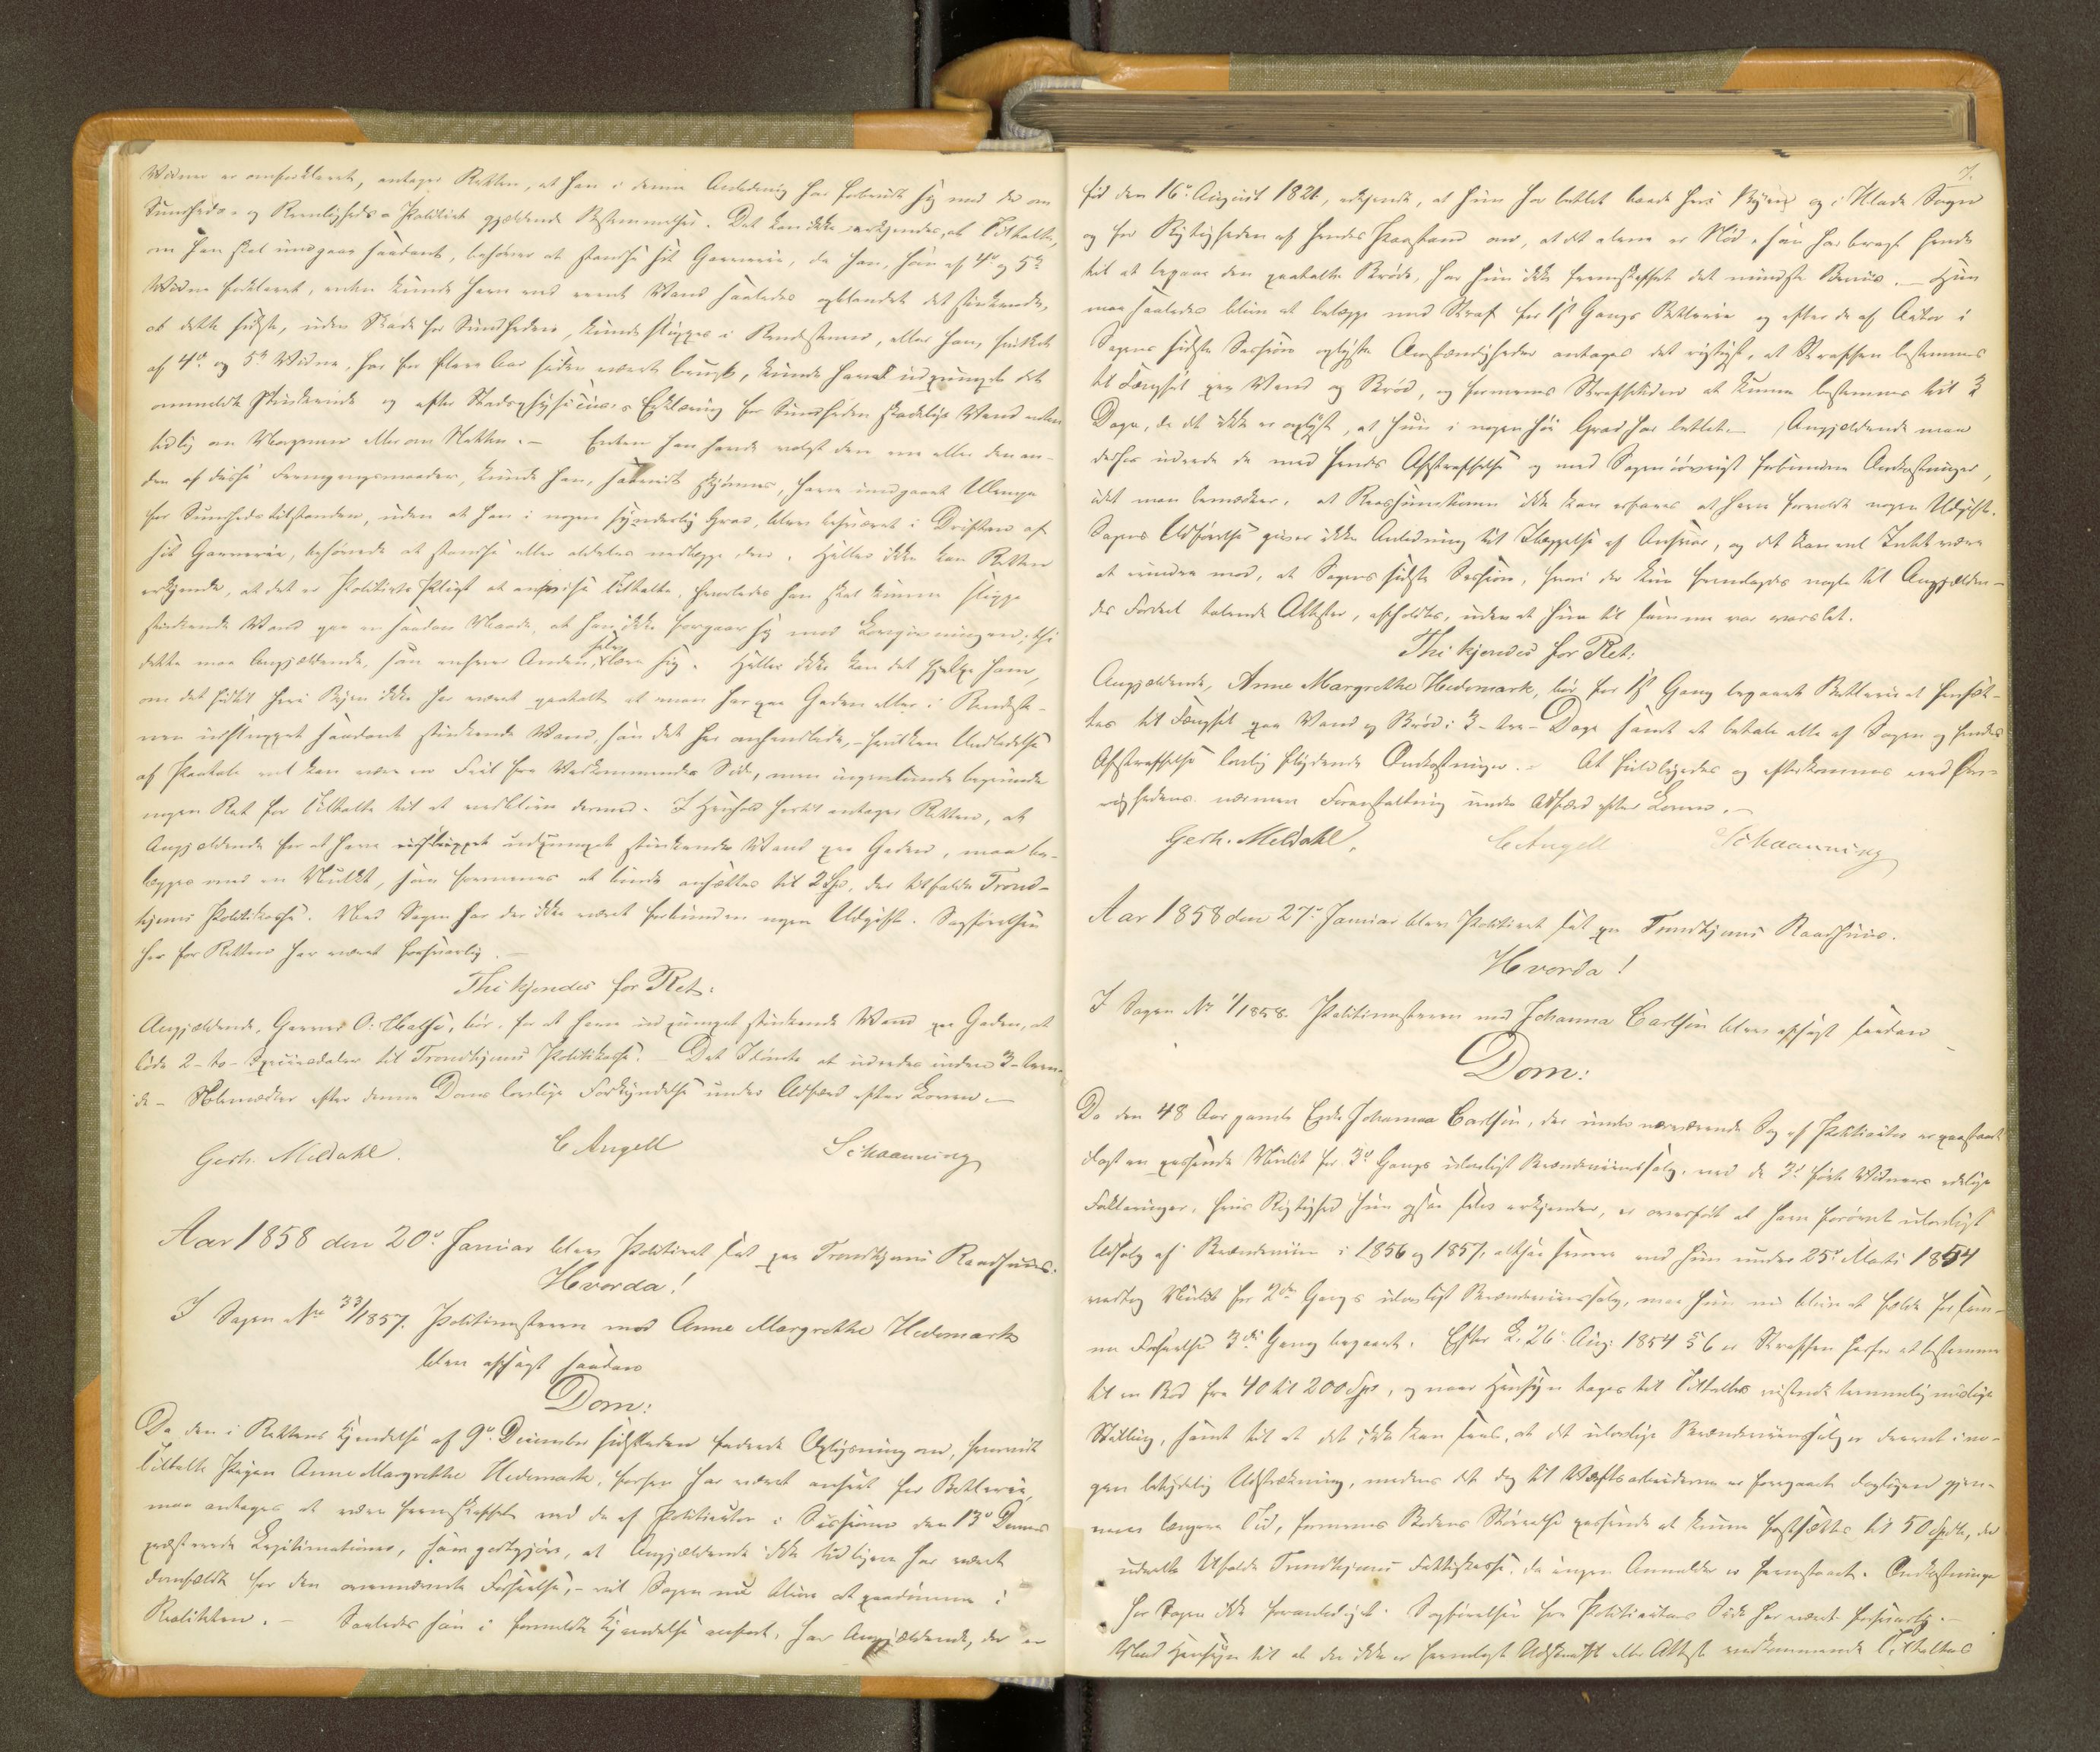 Vidner er omforklaret, antager Retten, at han i denne Anledning har forbrudt sig mod de om
Sundheds- og Reenligheds-Politiet gjældende Bestemmelser. Det kan ikke erkjendes, at Tiltalte,
om han skal undgaae saadant, behøver at standse sit Garverie, da han, som af 4de og 5te
Vidne forklaret, enten kunde have med reent Vand saaledes opblandet det stinkende,
at dette sidste, uden Skade for Sundheden, kunde slippes i Rendestenen, eller han, hvilket
af 4de og 5te Vidne, har for flere Aar siden været brugt, kunde have udpumpet det
ommeldte stinkende og efter Stadsphysicus's Erklæring for Sundheden skadelige Vand enten
tidlig om Morgenen eller om Natten. – Enten han havde valgt den ene eller den an-
den af disse Fremgangsmaader, kunde han, saavidt skjønnes, have undgaaet Ulempe
for Sundhedstilstanden, uden at han i nogen synderlig Grad, blev besværet i Driften af
sit Garverie, behøvede at standse eller aldeles nedlægge den. Heller ikke kan Retten
erkjende, at det er Politiets Pligt at anvise Tiltalte, hvorledes han skal kunne slippe
stinkende Vand paa en saadan Maade, at han ikke forgaaer sig mod Lovgivningen; thi
dette maa Angjældende, som enhver Anden, selv lære sig. Heller ikke kan det hjelpe ham,
om det hidtil heri Byen ikke har været paatalt at man har paa Gaden eller i Rendeste-
nen udsluppet saadant stinkende Vand, som det her omhandlede, – hvilken Undladelse
af Paatale vel kan være en Feil fra Vedkommendes Side, men ingenlunde begrunde
nogen Ret for Tiltalte til at vedblive dermed. I Henhold hertil antager Retten, at
Angjældende for at have udpumpet stinkende Vand paa Gaden, maa be-
lægges med en Mulkt, som formenes at burde ansættes til 2 Spd, der tilfalde Trond-
hjems Politikasse. Med Sagen har der ikke været forbunden nogen Udgift. Sagførelsen
her for Retten har været forsvarlig. –
Thi kjendes for Ret:
Angjældende, Garver O. Halse, bør, for at have udpumpet stinkende Vand paa Gaden, at
bøde 2 – to – Speciedaler til Trondhjems Politikasse. – Det Idømte at udredes inden 3 – tren-
de – Solemærker efter denne Doms lovlige Forkyndelse under Adfærd efter Loven. –
Gerh. Meldahl. C Angell Schaanning
Aar 1858 den 20de Januar blev Politiret sat paa Trondhjems Raadhuus.
Hvorda!
I Sagen No 33/1857. Politimesteren mod Anne Margrethe Hedemark
blev afsagt saadan
Dom:
Da den i Rettens Kjendelse af 9de December sidstleden fordrede Oplysning om, hvorvidt
Tiltalte Pigen Anne Margrethe Hedemark, forhen har været anseet for Betlerie,
maa antages at være fremskaffet ved de af Politiactor i Sessionen den 13de Dennes
præsterede Legitimationer, som godtgjøre, at Angjældende ikke tidligere har været
domfældt for den ovennævnte Forseelse, – vil Sagen nu blive at paadømme i
Realiteten. – Saaledes som i formeldte Kjendelse anført, har Angjældende, der er
7.
fød den 16de August 1821, erkjendt, at hun har betlet baade heri Byen og i Strinde Sogn
og for Rigtigheden af hendes Paastand om, at det alene er Nød, som har bragt hende
til at begaae den paatalte Brøde, har hun ikke fremskaffet det mindste Beviis. – Hun
maa saaledes blive at belægge med Straf for 1ste Gangs Betlerie og efter de af Actor i
Sagens sidste Session oplyste Omstændigheder antages det rigtigst, at Straffen bestemmes
til Fængsel paa Vand og Brød, og formenes Straffetiden at kunne bestemmes til 3
Dage, da det ikke er oplyst, at hun i nogen høi Grad har betlet. – Angjældende maa
derhos udrede de med hendes Afstraffelse og med Sagen iøvrigt forbundne Omkostninger,
idet man bemærker, at Reassumtionen ikke kan erfares at have foranlediget nogen Udgift.
Sagens Udførelse giver ikke Anledning til Ilæggelse af Ansvar, og det kan vel Intet være
at erindre mod, at Sagens sidste Session, hvori der kun fremlagdes nogle til Angjælden-
des Fordeel talende Attester, afholdtes, uden at hun til samme var varslet.
Thi kjendes for Ret:
Angjældende, Anne Margrethe Hedemark, bør for 1ste Gang begaaet Betlerie at hensæt-
tes til Fængsel paa Vand og Brød i 3 – tre – Dage samt at betale alle af Sagen og hendes
Afstraffelse lovlig flydende Omkostninger. – At fuldbyrdes og efterkommes ved Øv-
righedens nærmere Foranstaltning under Adfærd efter Loven. –
Gerh. Meldahl. C Angell Schaanning
Aar 1858 den 27de Januar blev Politiret sat paa Trondhjems Raadhuus.
Hvorda!
I Sagen No 1/1858. Politimesteren mod Johanna Carlsen blev afsagt saadan
Dom:
Da den 48 Aar gamle Enke Johanna Carlsen, der under nærværende Sag af Politiactor er paastaaet
ilagt en passende Mulkt for 3die Gangs ulovligt Brændeviinssalg, ved de 3de førte Vidners edelige
Forklaringer, hvis Rigtighed hun ogsaa selv erkjender, er overført at have forøvet ulovligt
Udsalg af Brændeviin i 1856 og 1857, altsaa senere end hun under 25de Marts 1854
vedtog Mulkt for 2den Gangs ulovligt Brændeviinssalg, maa hun nu blive at fælde for sam-
me Forseelse 3die Gang begaaet. Efter L. 26de Aug. 1854 § 6 er Straffen herfor at bestemme
til en Bod fra 40 til 200 Spd, og naar Hensyn tages til Tiltaltes vistnok temmelig uselige
Stilling, samt til at det ikke kan sees, at det ulovlige Brændeviinssalg er drevet i no-
gen betydelig Udstrækning, medens det dog til Værftsarbeiderne er foregaaet dagligen gjen-
nem længere Tid, formenes Bodens Størrelse passende at kunne fastsættes til 50 Spdlr, der
udeelte tilfalde Trondhjems Fattigkasse, da ingen Anmelder er fremstaaet. Omkostninger
har Sagen ikke foranlediget. Sagførelsen fra Politiactors Side har været forsvarlig. –
Med Hensyn til at der ikke er fremlagt Udskrift eller Attest vedkommende Tiltaltes